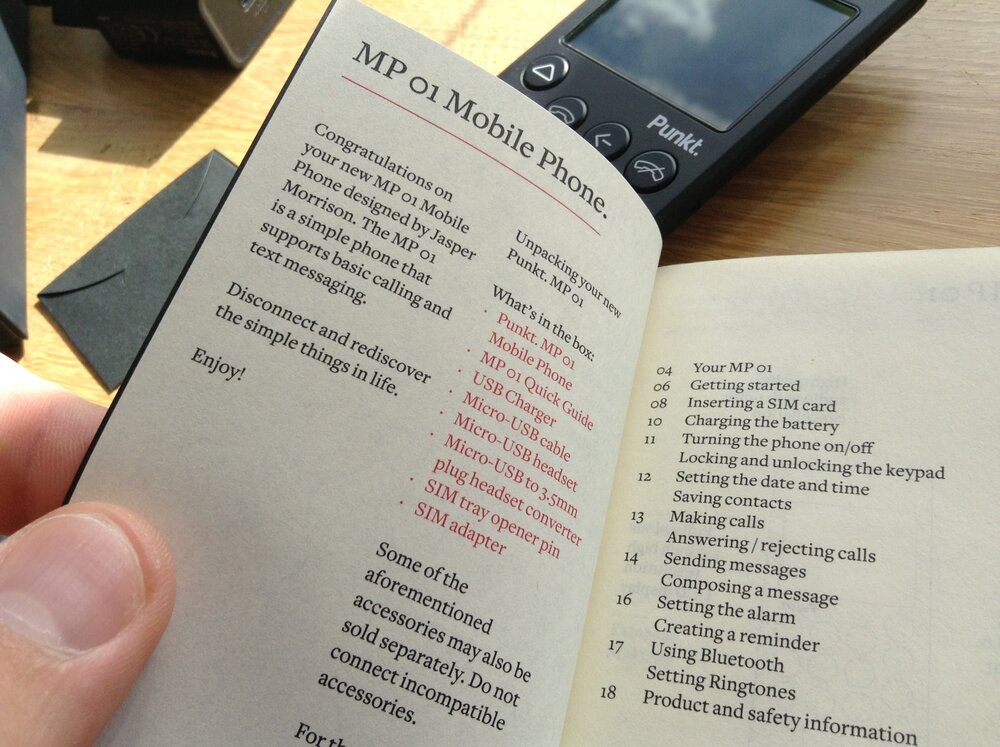 MP 01 Mobile Phone.
Congratulations on
your new MP 01 Mobile
Phone designed by Jasper
Morrison. The MP 01
is a simple phone that
supports basic calling and
text messaging.
Disconnect and rediscover
the simple things in life.
Enjoy!
Unpacking your new
Punkt. MP 01
What's in the box:
· Punkt. MP 01
Mobile Phone
· MP 01 Quick Guide
· USB Charger
· Micro-USB cable
· Micro-USB headset
· Micro-USB to 3.5mm
plug headset converter
· SIM tray opener pin
· SIM adapter
Some of the
aforementioned
accessories may also be
sold separately. Do not
connect incompatible
accessories.
For
Punkt.
04 Your MP 01
06 Getting started
08 Inserting a SIM card
10 Charging the battery
11 Turning the phone on/off
Locking and unlocking the keypad
12 Setting the date and time
Saving contacts
13 Making calls
Answering / rejecting calls
14 Sending messages
Composing a message
16 Setting the alarm
Creating a reminder
17 Using Bluetooth
Setting Ringtones
18 Product and safety information